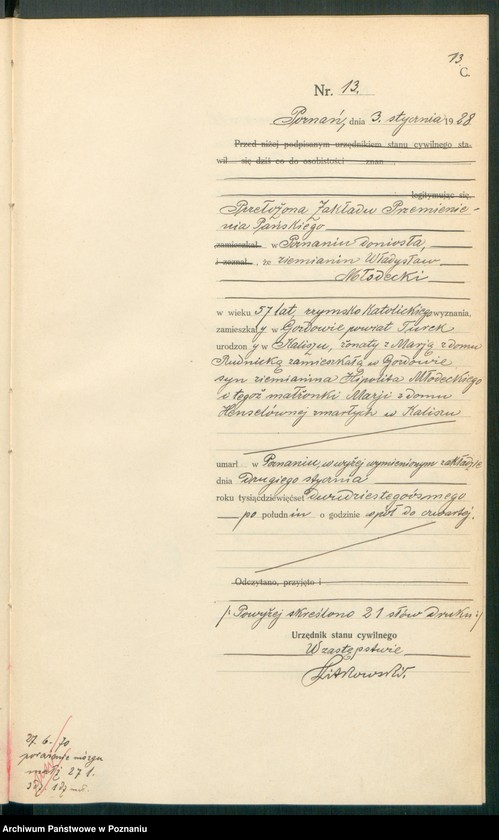 13
C.
Nr. 13.
Poznań, dnia 3. stycznia 1928
Przed niżej podpisanym urzędnikiem stanu cywilnego sta-
wił się dziś co do osobistości znan
legitymując się
Przełożona Zakładu Przemienie-
nia Pańskiego
zamieszkał w Poznaniu doniosła,
i zeznał, że ziemianin Władysław
Młodecki
w wieku 57 lat, rzymsko katolickiego wyznania,
zamieszkały w Gozdowie powiat Turek
urodzony w Kaliszu, żonaty z Marją z domu
Rudnicką zamieszkałą w Gozdowie,
syn ziemianina Hipolita Młodeckiego
i tegoż małżonki Marji z domu
Henselównej zmarłych w Kaliszu
umarł w Poznaniu, w wyżej wymienionym zakładzie
dnia drugiego stycznia
roku tysiącdziewięćset dwudziestegoósmego
po południu o godzinie wpół do czwartej.
Odczytano, przyjęto i
/: Powyżej skreślono 21 słów druku :/
Urzędnik stanu cywilnego
W zastępstwie
Witkowski.
27. 6. 70
porażenie mózgu
27 1.
Archiwum Państwowe w Poznaniu